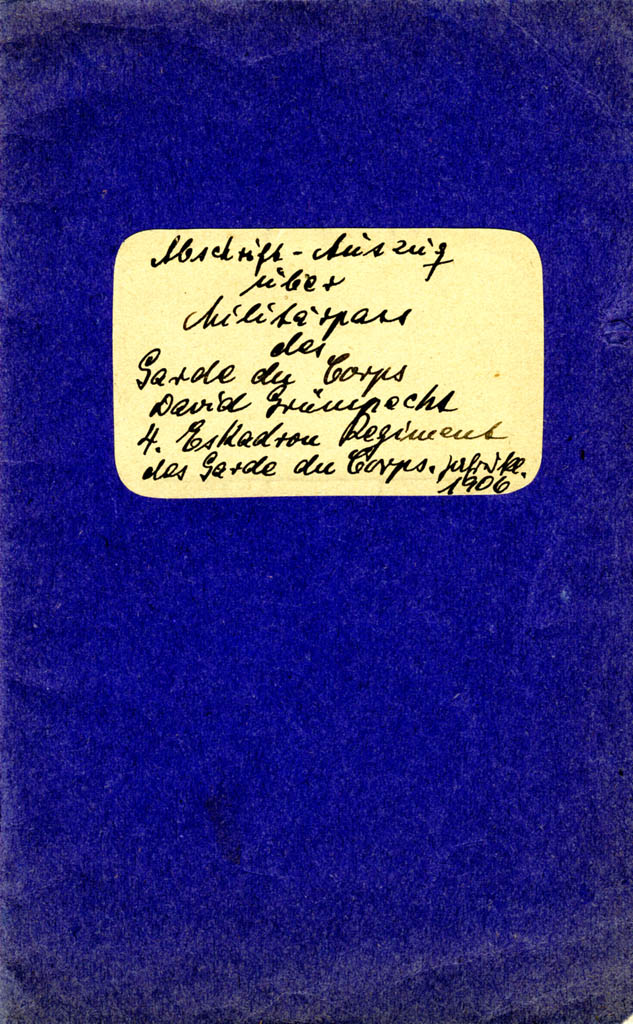 Abschrift-Auszug
über
Militärpass
des
Garde du Corps
David Grünspecht
4. Eskadron Regiment
des Garde du Corps.
1906